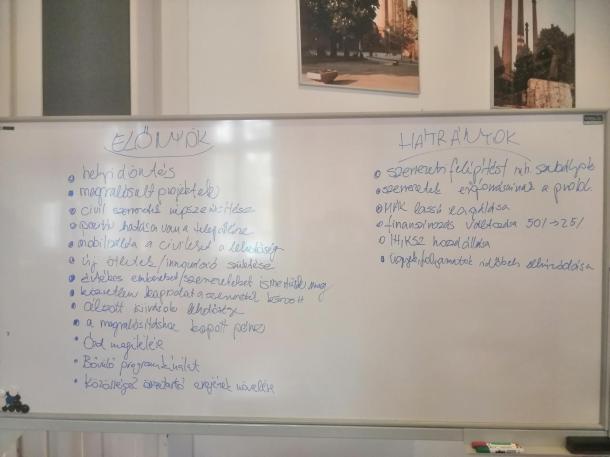 ELŐNYÖK
helyi döntés
megvalósult projektek
civil szervezetek népszerűsítése
pozitív hatása van a településre
mobilizálta a civileket a lehetőség
új ötletek/innováció születése
értékes embereket/szervezeteket ismertünk meg
közvetlen kapcsolat a szervezetek között
célzott kiírások lehetősége
a megvalósításhoz kapott pénz
Ózd megítélése
Bővülő programkínálat
Közösségek összetartó erejének növelése
HÁTRÁNYOK
szervezeti felépítést neh. szabályok
szervezetek erőforrásainak a probl.
MÁK lassú reagálása
finanszírozás változása 50/→25/
HKSZ hozzáállása
ügyek, folyamatok időbeli elhúzódása